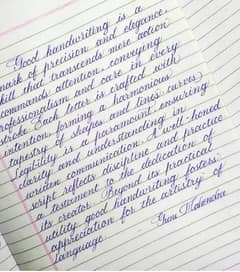 Good handwriting is a
mark of precision and elegance,
skill that transcends mere action
commands attention conveying
professionalism and care in every
stroke Each letter is crafted with
intention, forming a harmonious
tapestry of shapes and lines, curves
Legibility is a paramount ensuring
clarity and understanding in
written communication. A well-honed
script reflects discipline and practice
a testament to the dedication of
its creator. Beyond its practical
utility good handwriting fosters
appreciation for the artistry of
language